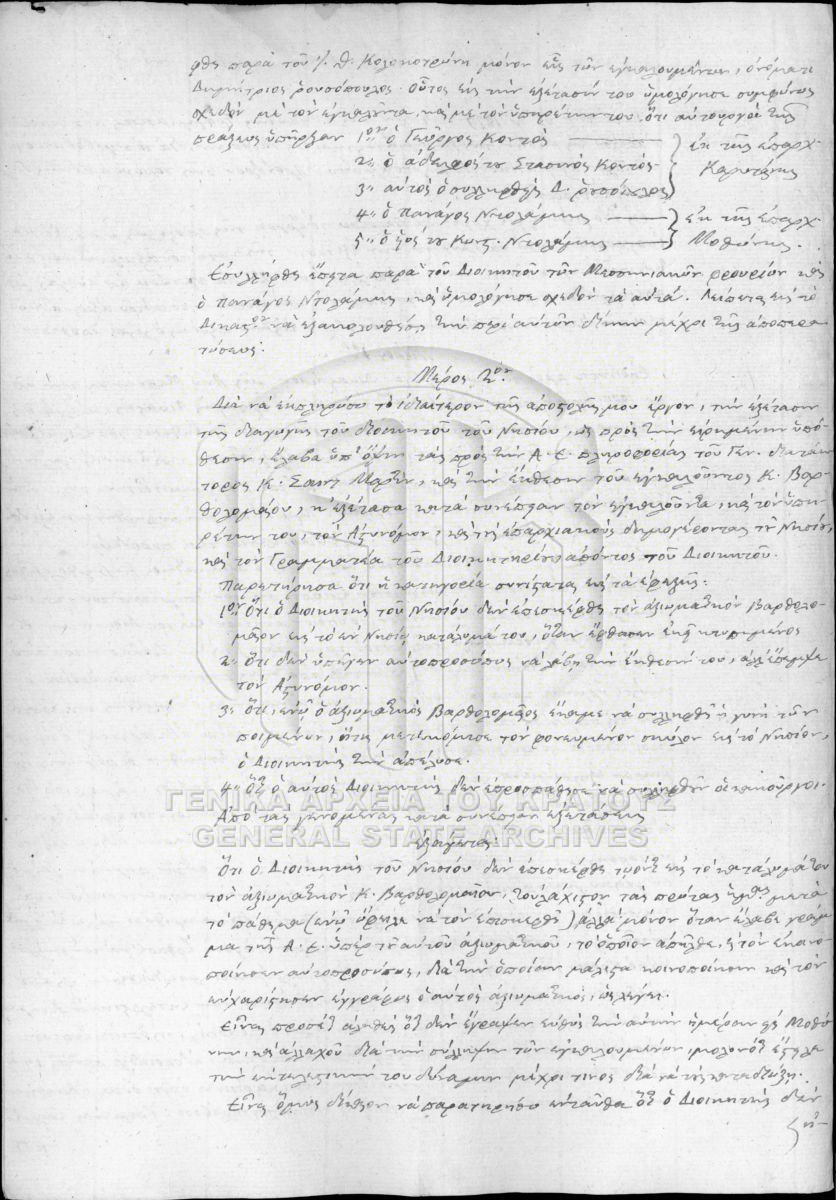 φθη παρὰ τοῦ Γ. Θ. Κολοκοτρώνη μόνον εἷς τῶν ἐγκαλουμένων, ὀνόματι
Δημήτριος Ῥουσόπουλος. οὗτος εἰς τὴν ἐξέτασίν του ὡμολόγησε συμφώνως
σχεδὸν μὲ τὸν ἐγκαλοῦντα, καὶ μὲ τὸν ὑπηρέτην του, ὅτι αὐτουργοὶ τῆς
πράξεως ὑπῆρξαν 1ον ὁ Γεώργος Κοντὸς
2. ὁ ἀδελφός του Στασινὸς Κοντὸς
3. αὐτὸς ὁ συλληφθεὶς Δ. Ῥουσόπουλος
ἐκ τῆς ἐπαρχ.
Καρυταίνης
4. ὁ Πανάγος Ντολάμης
5. ὁ υἱός του Κωτζ. Ντολάμης
ἐκ τῆς ἐπαρχ.
Μοθώνης.
Ἐσυλλήφθη ἔπειτα παρὰ τοῦ Διοικητοῦ τῶν Μεσσηνιακῶν φρουρίων καὶ
ὁ Πανάγος Ντολάμης, καὶ ὡμολόγησε σχεδὸν τὰ αὐτά. Λείπεται εἰς τὸ
Δικασ. νὰ ἐξακολουθήσῃ τὴν περὶ αὐτῶν δίκην μέχρι τῆς ἀποπερα
τώσεως.
Μέρος 2ον.
Διὰ νὰ ἐκπληρώσω τὸ ἰδιαίτερον τῆς ἀποστολῆς μου ἔργον, τὴν ἐξέτασιν
τῆς διαγωγῆς τοῦ διοικητοῦ τοῦ Νησίου, ὡς πρὸς τὴν εἰρημένην ὑπό
θεσιν, ἔλαβα ὑπ' ὄψιν τὰς πρὸς τὴν Α. Ε. πληροφορίας τοῦ Γεν. διατάκ
τορος Κ. Σαιντ Μαρτὲν, καὶ τὴν ἔκθεσιν τοῦ ἐγκαλοῦντος Κ. Βαρ
θολομαίου, κ' ἐξέτασα κατὰ συνέπειαν τὸν ἐγκαλοῦντα, καὶ τὸν ὑπη
ρέτην του, τὸν Ἀστυνόμον, καὶ τοὺς ἐπαρχιακοὺς δημογέροντας τοῦ Νησίου,
καὶ τὸν Γραμματέα τοῦ Διοικητηρίου ἀπόντος τοῦ Διοικητοῦ.
Παρετήρησα ὅτι ἡ κατηγορία συνίσταται εἰς τὰ ἑξῆς:
1ον Ὅτι ὁ Διοικητὴς τοῦ Νησίου δὲν ἐπεσκέφθη τὸν ἀξιωματικὸν Βαρθολο
μαῖον εἰς τὸ ἐν Νησίῳ κατάλυμά του, ὅταν ἔφθασεν ἐκεῖ κτυπημένος
2. Ὅτι δὲν ὑπῆγεν αὐτοπροσώπως νὰ λάβῃ τὴν ἔκθεσίν του, ἀλλ' ἔπεμψε
τὸν Ἀστυνόμον.
3. Ὅτι, ἐνῷ ὁ ἀξιωματικὸς Βαρθολομαῖος ἔκαμε νὰ συλληφθῇ ἡ γυνὴ τῶν
ποιμένων, ἥτις μετεκόμισε τὸν φονευμένον σκύλον εἰς τὸ Νησίον,
ὁ Διοικητὴς τὴν ἀπέλυσε.
4. ὅτι ὁ αὐτὸς Διοικητὴς δὲν ἐπροσπάθησε νὰ συλληφθοῦν οἱ κακοῦργοι.
Ἀπὸ τὰς γενομένας κατὰ συνέπειαν ἐξετάσεις
ἐξάγεται:
Ὅτι ὁ Διοικητὴς τοῦ Νησίου δὲν ἐπεσκέφθη εἰς τὸ κατάλυμά του
τὸν ἀξιωματικὸν Κ. Βαρθολομαῖον, τοὐλάχιστον τὰς πρώτας ἡμέρας μετὰ
τὸ πάθημα (ἐνῷ ὤφειλε νὰ τὸν ἐπισκεφθῇ) ἀλλὰ μόνον ὅταν ἔλαβε γράμ
μα τῆς Α. Ε. ὑπὲρ τοῦ αὐτοῦ ἀξιωματικοῦ, τὸ ὁποῖον ἀπῆλθε, κ' τὸν ἐκοινο
ποίησεν αὐτοπροσώπως, διὰ τὴν ὁποίαν μάλιστα κοινοποίησιν καὶ τὸν
εὐχαρίστησεν ἐγγράφως ὁ αὐτὸς ἀξιωματικὸς, ὡς λέγει.
Εἶναι προσέτι ἀληθὲς ὅτι δὲν ἔγραψεν εὐθὺς τὴν αὐτὴν ἡμέραν εἰς Μοθώ
νην, καὶ ἀλλαχοῦ διὰ τὴν σύλληψιν τῶν ἐγκαλουμένων, μολονότι ἔστειλε
τὴν ἐκτελεστικήν του δύναμιν μέχρι τινὸς διὰ νὰ τοὺς καταδιώξῃ.
Εἶναι ὅμως δίκαιον νὰ παρατηρήσω ἐνταῦθα ὅτι ὁ Διοικητὴς δὲν
ΓΕΝΙΚΑ ΑΡΧΕΙΑ ΤΟΥ ΚΡΑΤΟΥΣ
GENERAL STATE ARCHIVES